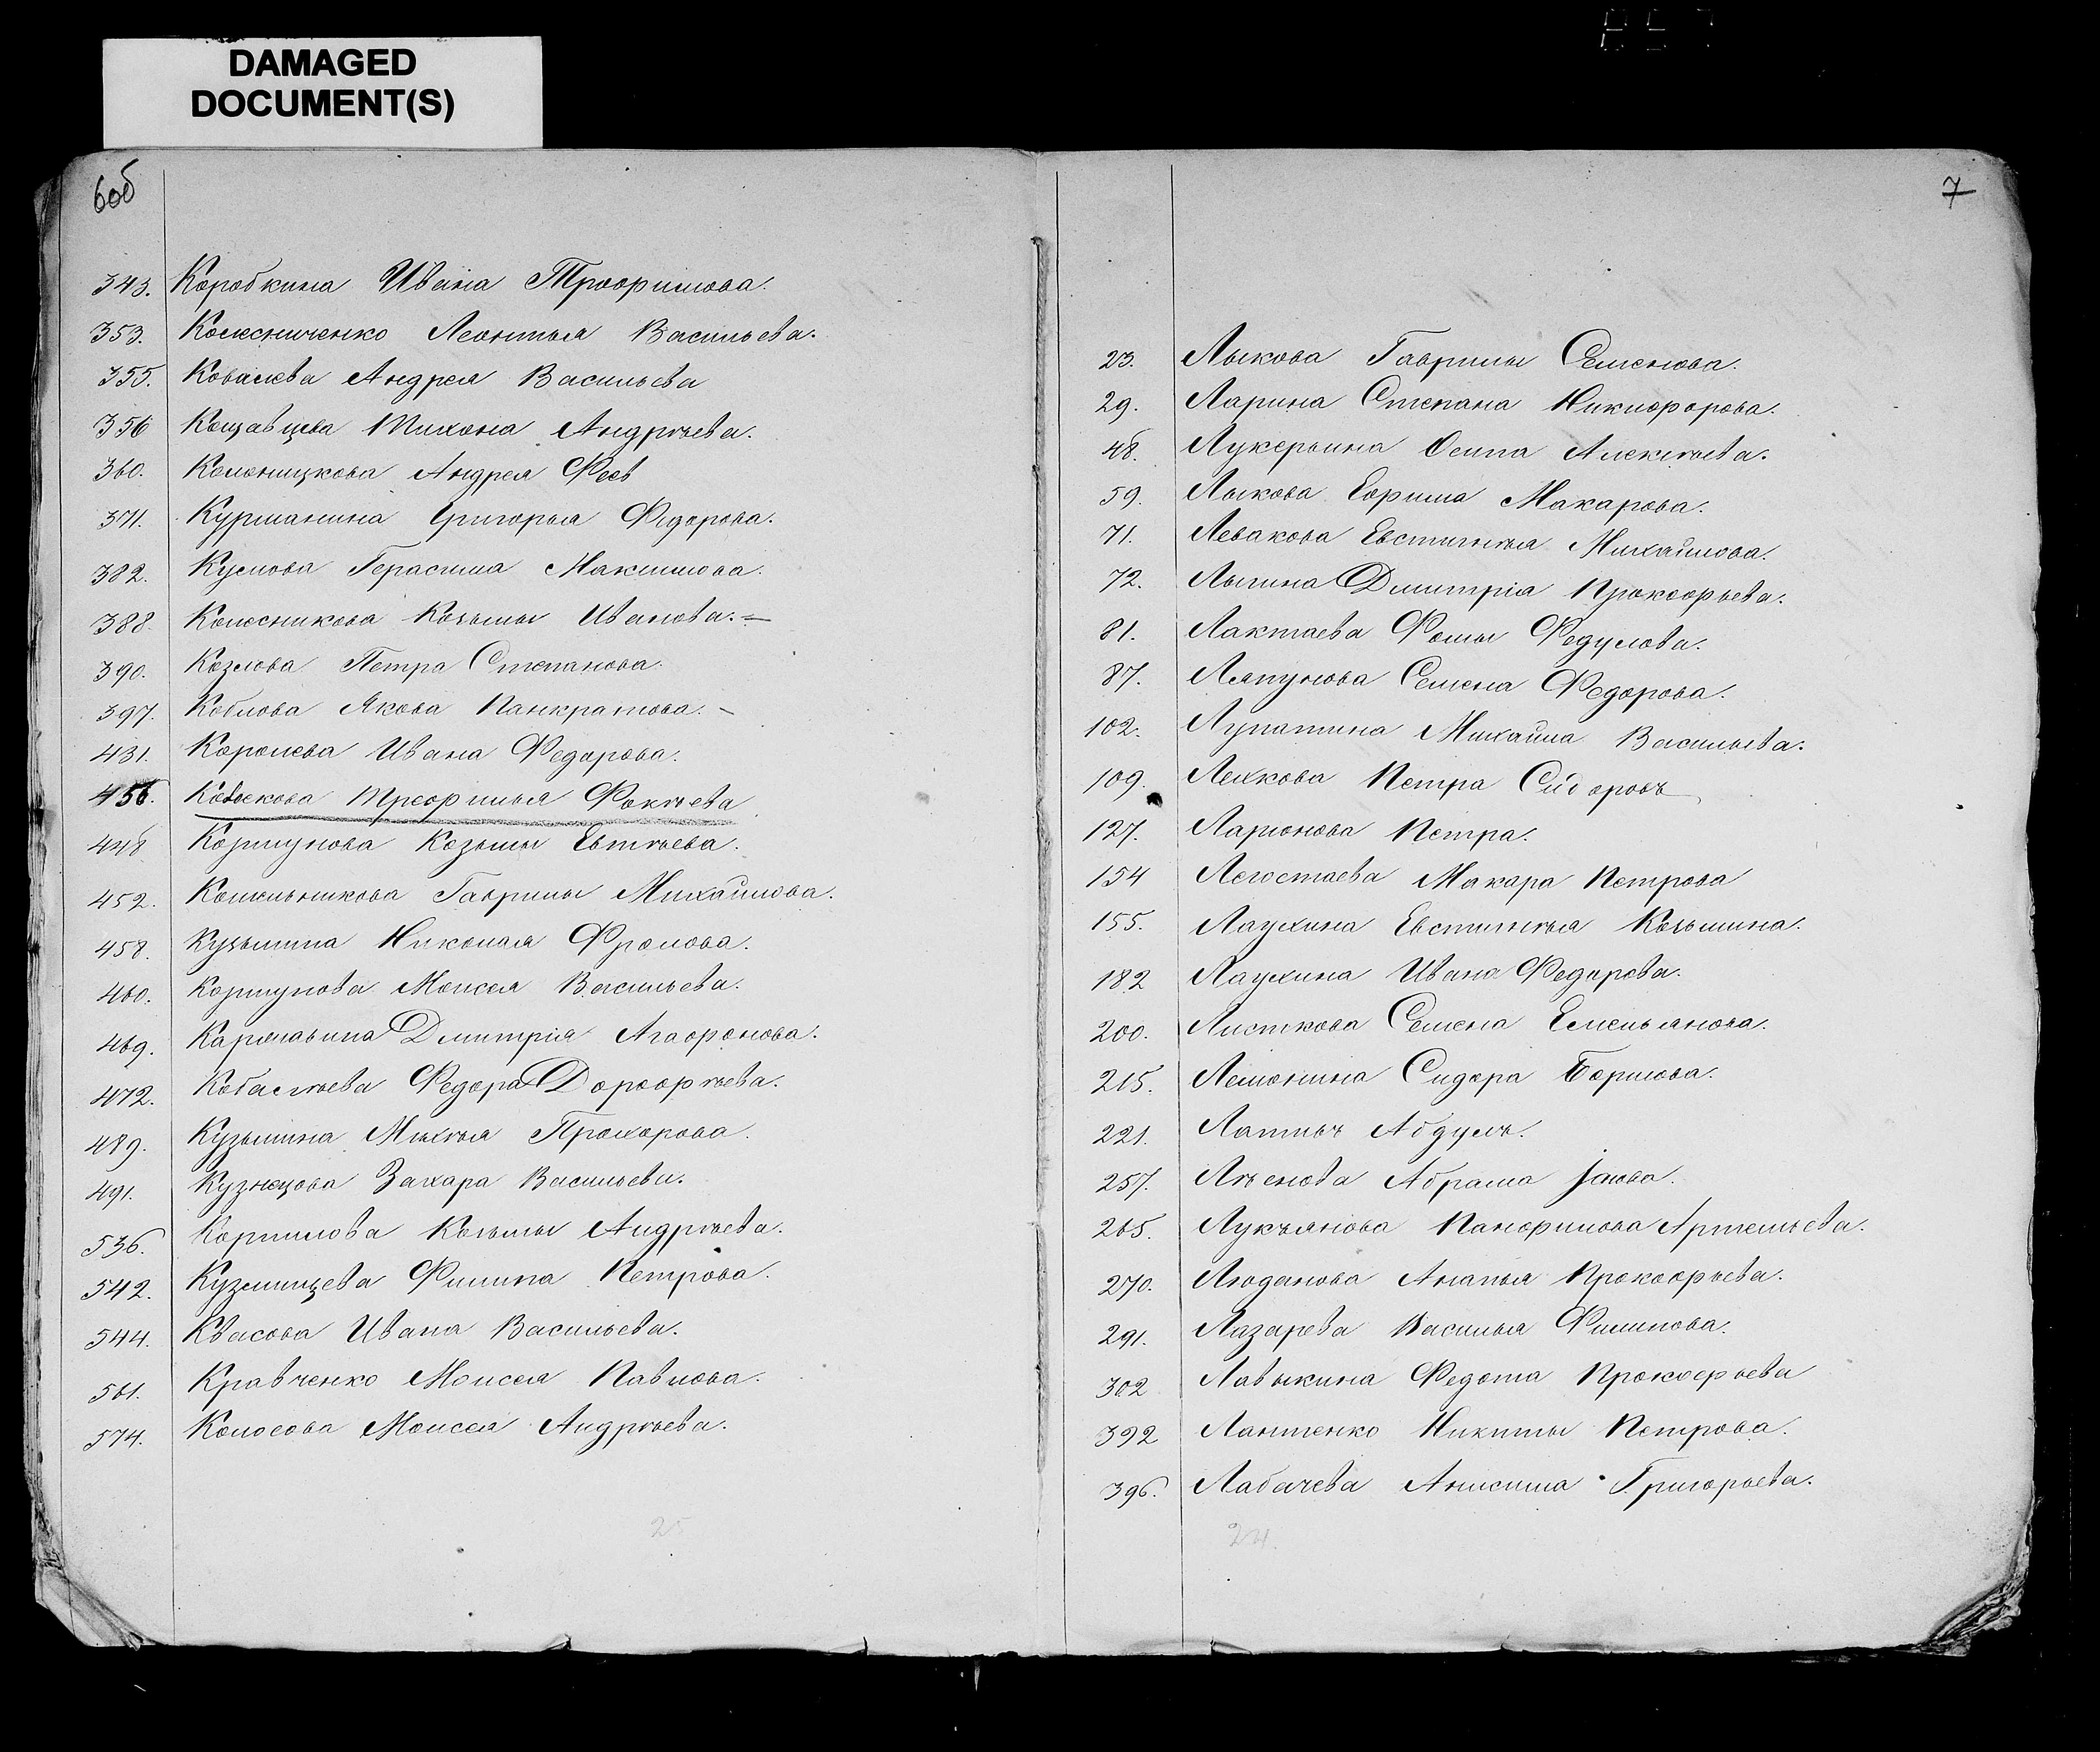 DAMAGED
DOCUMENT(S)
6об
343. Коробкина Ивана Трофимова.
353. Колесниченко Леонтья Васильева.
355. Ковалева Андрея Васильева
356 Кощавцева Тихона Андрѣева.
360. Колоницкова Андрея Феов
371. Курманина Григорья Фидорова.
382. Куслова Герасима Максимова.
388. Колесникова Козьмы Иванова. =
390. Козлова Петра Степанова.
397. Коблова Якова Панкратова. -
431. Королева Ивана Федорова.
456. Трефилья Фоктѣева
448 Коршунова Козьмы Евтѣева.
452. Котельникова Гаврилы Михайлова.
458. Кузьмина Николая Фролова.
460. Коршунова Моисея Васильева.
469. Дмитрія Агафонова.
472. Кобаслѣева Федора Дорофѣева.
489. Кузьмина Михѣя Прохорова.
491. Кузнецова Захара Васильева.
536. Корнилова Козьмы Андрѣева.
542. Кузмищева Филипа Петрова.
544. Квасова Ивана Васильева.
561. Кравченко Моисея Павлова.
574. Колосова Моисея Андрѣева.
25
7
23. Лыкова Гаврилы Семенова.
29. Ларина Степана Никифорова.
48. Лукерьина Осипа Алексѣева.
59. Лыкова Ефима Макарова.
71. Левакова Евстигнѣя Михайлова.
72. Лыгина Дмитрія Прокофьева.
81. Лактаева Фомы Федулова.
87. Ляпунова Семена Федорова.
102. Лупатина Михайла Васильева.
109. Лехкова Петра Сидоровъ
127. Ларионова Петра.
154 Легостаева Макара Петрова
155. Лаухина Евстигнѣя Козьмина.
182 Лаухина Ивана Федорова.
200. Листкова Семена Емельянова.
215. Лемонина Сидора Борисова.
221. Латыъ Абдулъ.
257. Лѣенова Абрама Іонова.
265. Лукъянова Панфилова Артемьева.
270. Люданова Ананья Прокофьева.
291. Лазарева Василья Филипова.
302 Лавыкина Федота Прокофьева
392 Лантенко Никиты Петрова.
396. Лабачева Анисима Григорьева.
24.